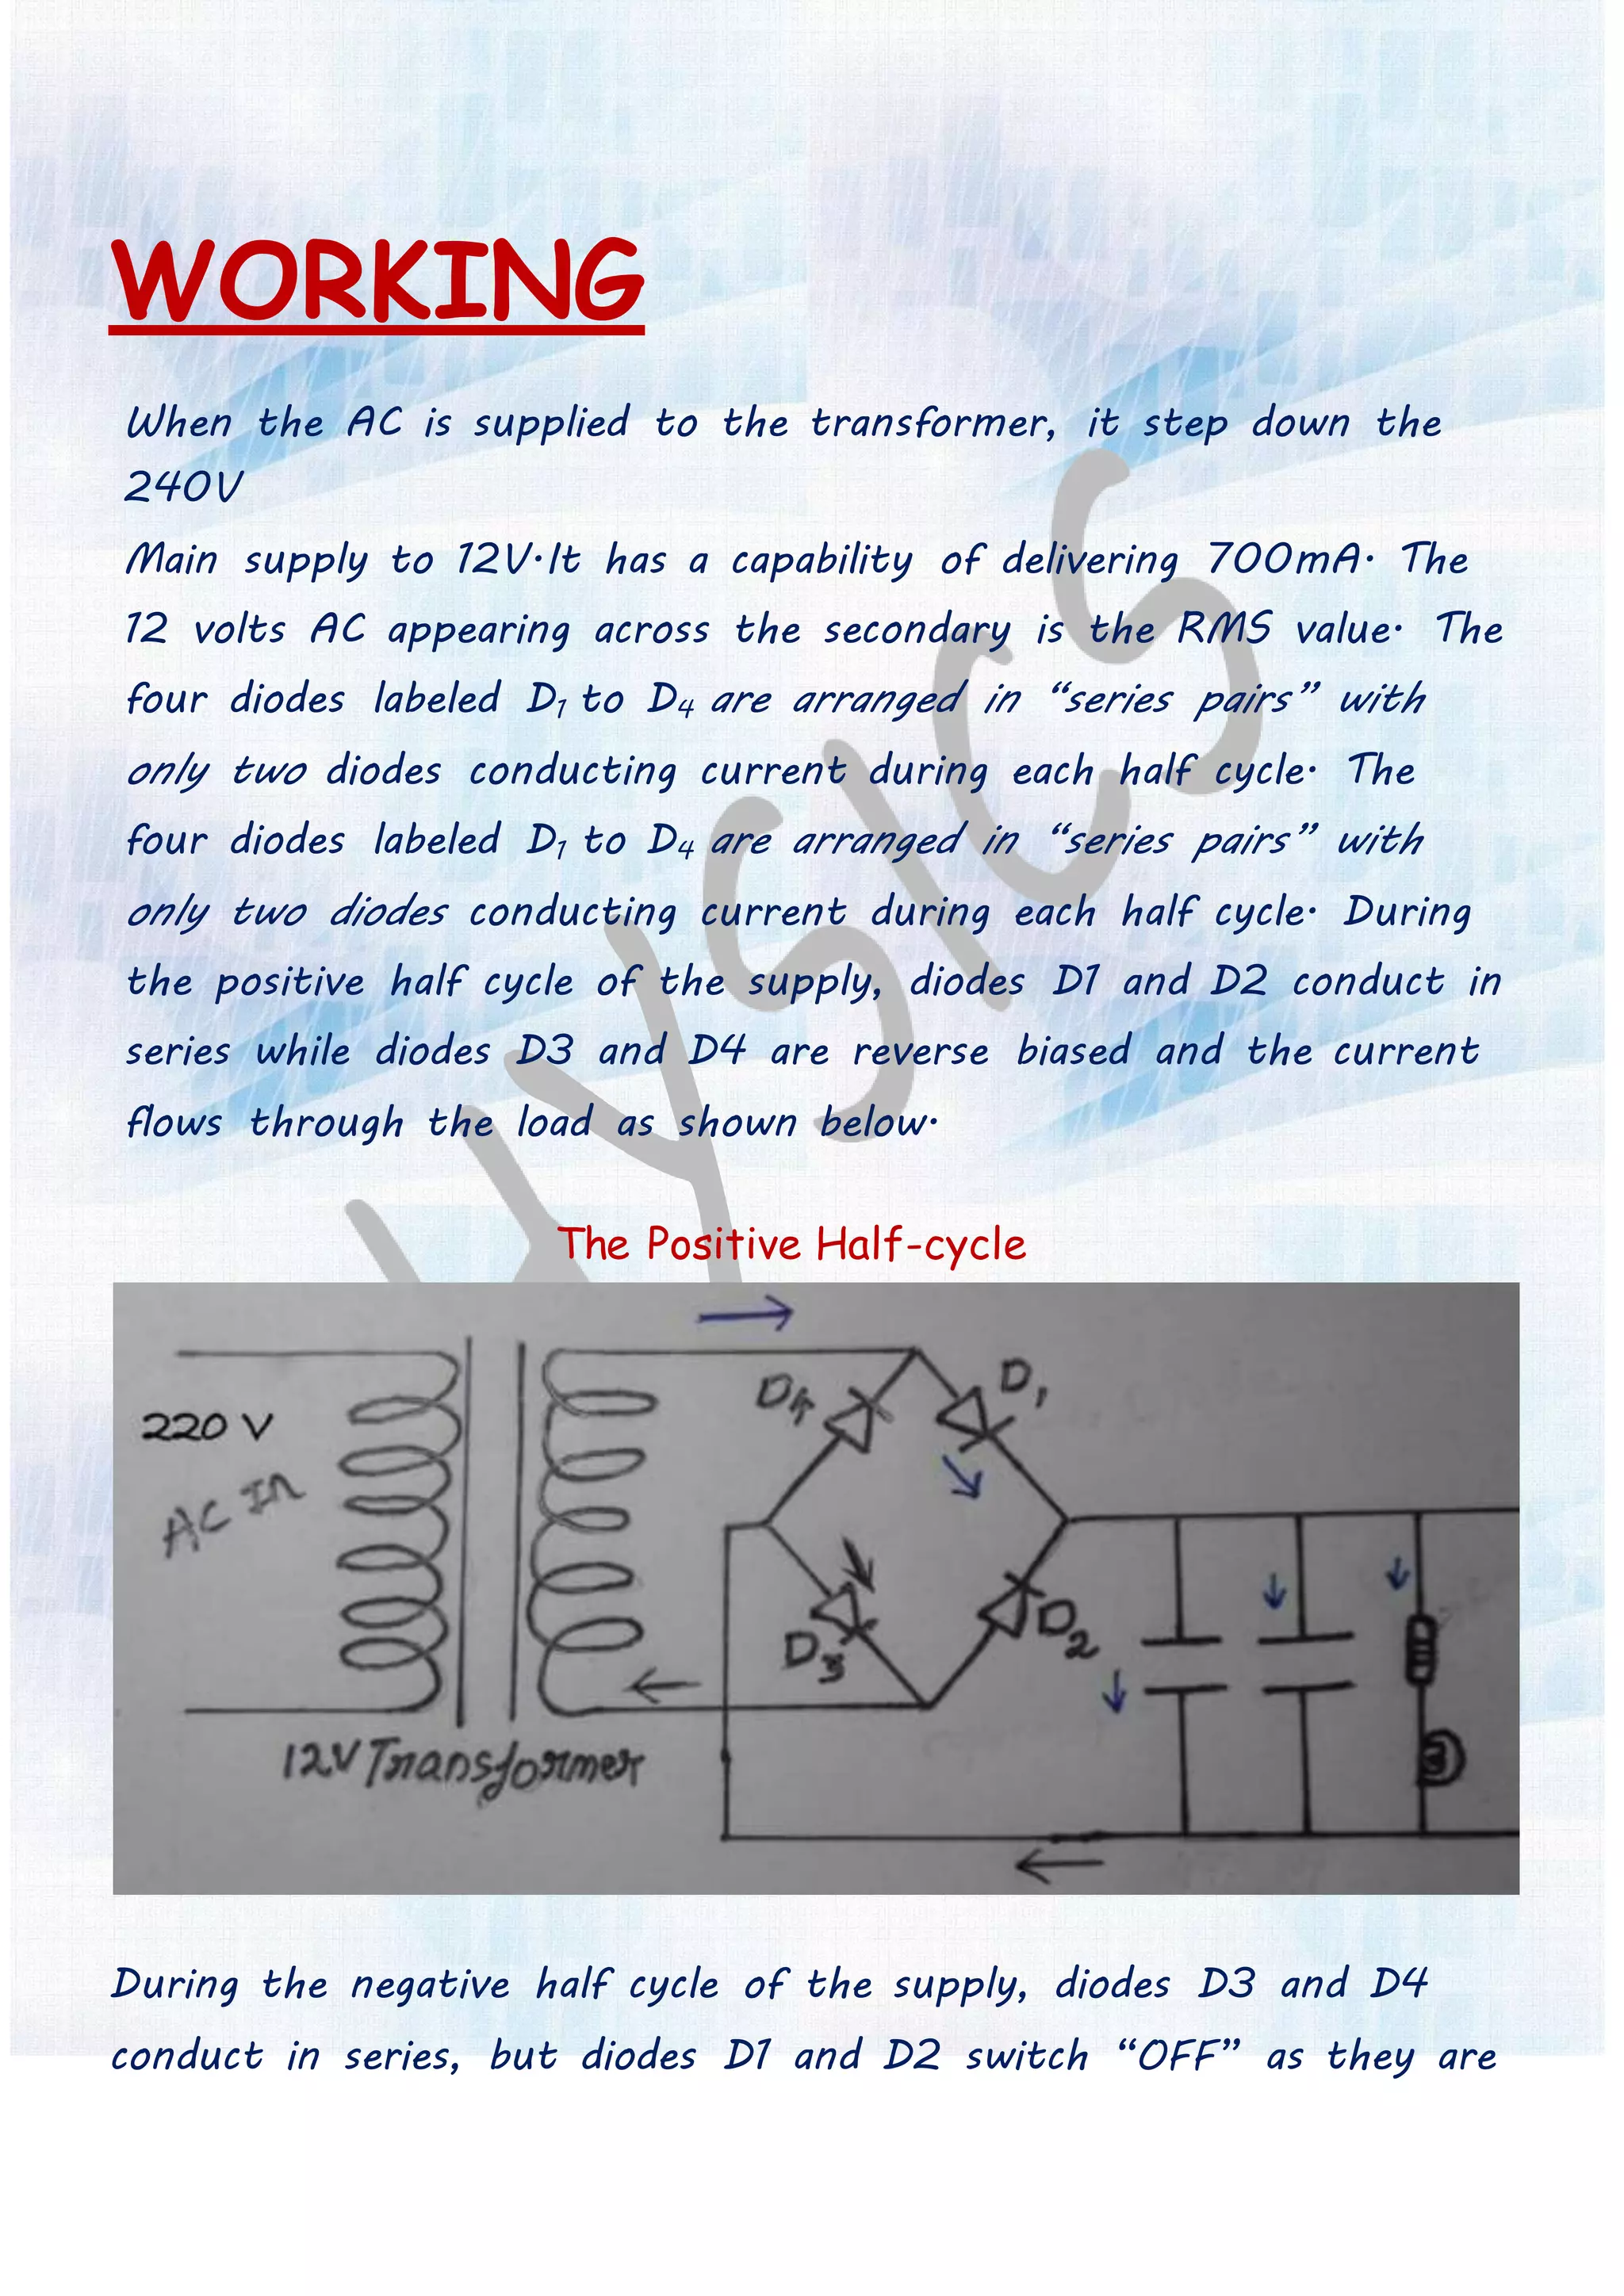 WORKING
When the AC is supplied to the transformer, it step down the
240V
Main supply to 12V.It has a capability of delivering 700mA. The
12 volts AC appearing across the secondary is the RMS value. The
four diodes labeled D₁ to D₄ are arranged in “series pairs” with
only two diodes conducting current during each half cycle. The
four diodes labeled D₁ to D₄ are arranged in “series pairs” with
only two diodes conducting current during each half cycle. During
the positive half cycle of the supply, diodes D1 and D2 conduct in
series while diodes D3 and D4 are reverse biased and the current
flows through the load as shown below.
The Positive Half-cycle
D4
D1
220 V
AC In
D3
D2
12V Transformer
During the negative half cycle of the supply, diodes D3 and D4
conduct in series, but diodes D1 and D2 switch “OFF” as they are